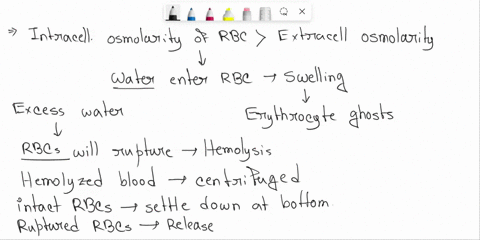 ⇒ Intracell. osmolarity of RBC > Extracell osmolarity
↓
Water enter RBC → Swelling
↓
Excess water
Erythrocyte ghosts
↓
RBCs will rupture → Hemolysis
Hemolyzed blood → centrifuged
intact RBCs → settle down at bottom.
Ruptured RBCs → Release